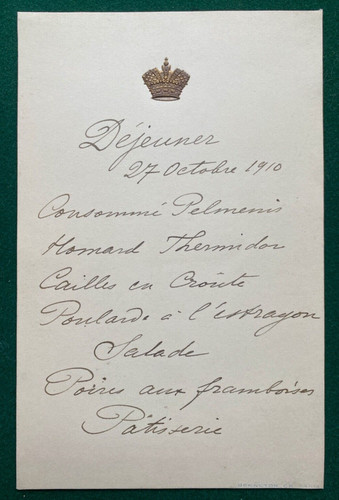 Déjeuner
27 Octobre 1910
Consommé Pelmenis
Homard Thermidor
Cailles en Croûte
Poularde à l'estragon
Salade
Poires aux framboises
Pâtisserie